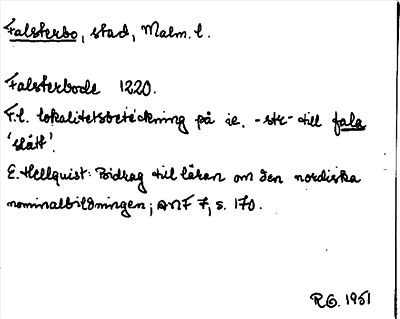 Falsterbo, stad, Malm. l.
Falsterbode 1220.
F.l. lokalitetsbeteckning på ie. -str- till fala
'slätt'.
E. Hellquist: Bidrag till läran om den nordiska
nominalbildningen; ANF 7, s. 170.
R.G. 1951